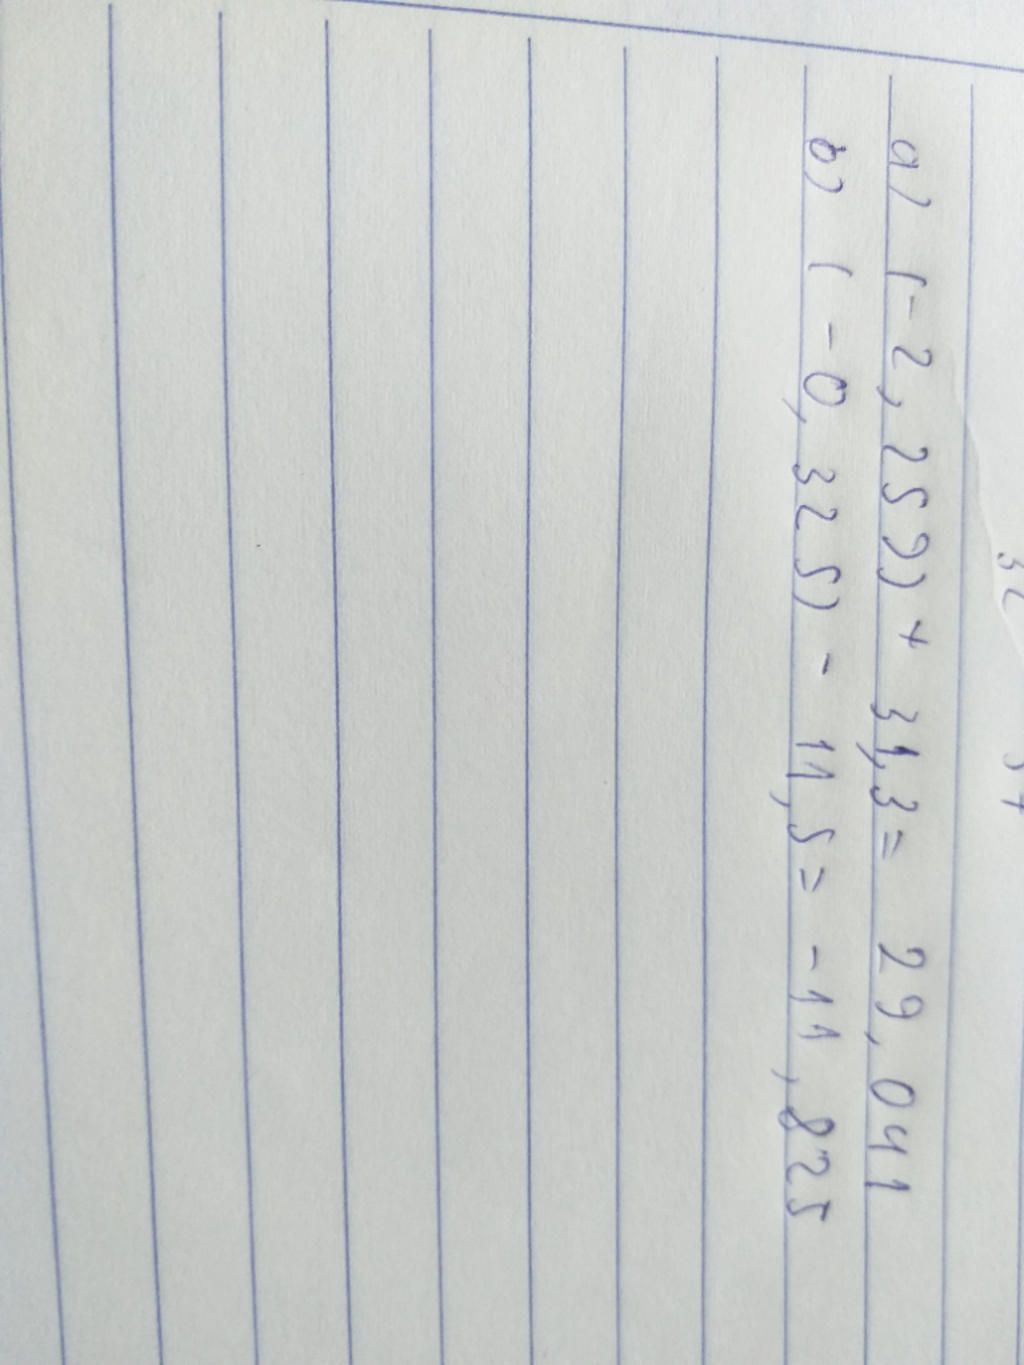 a) (-2,259) + 31,3 = 29,041
b) (-0,325) - 11,5 = -11,825